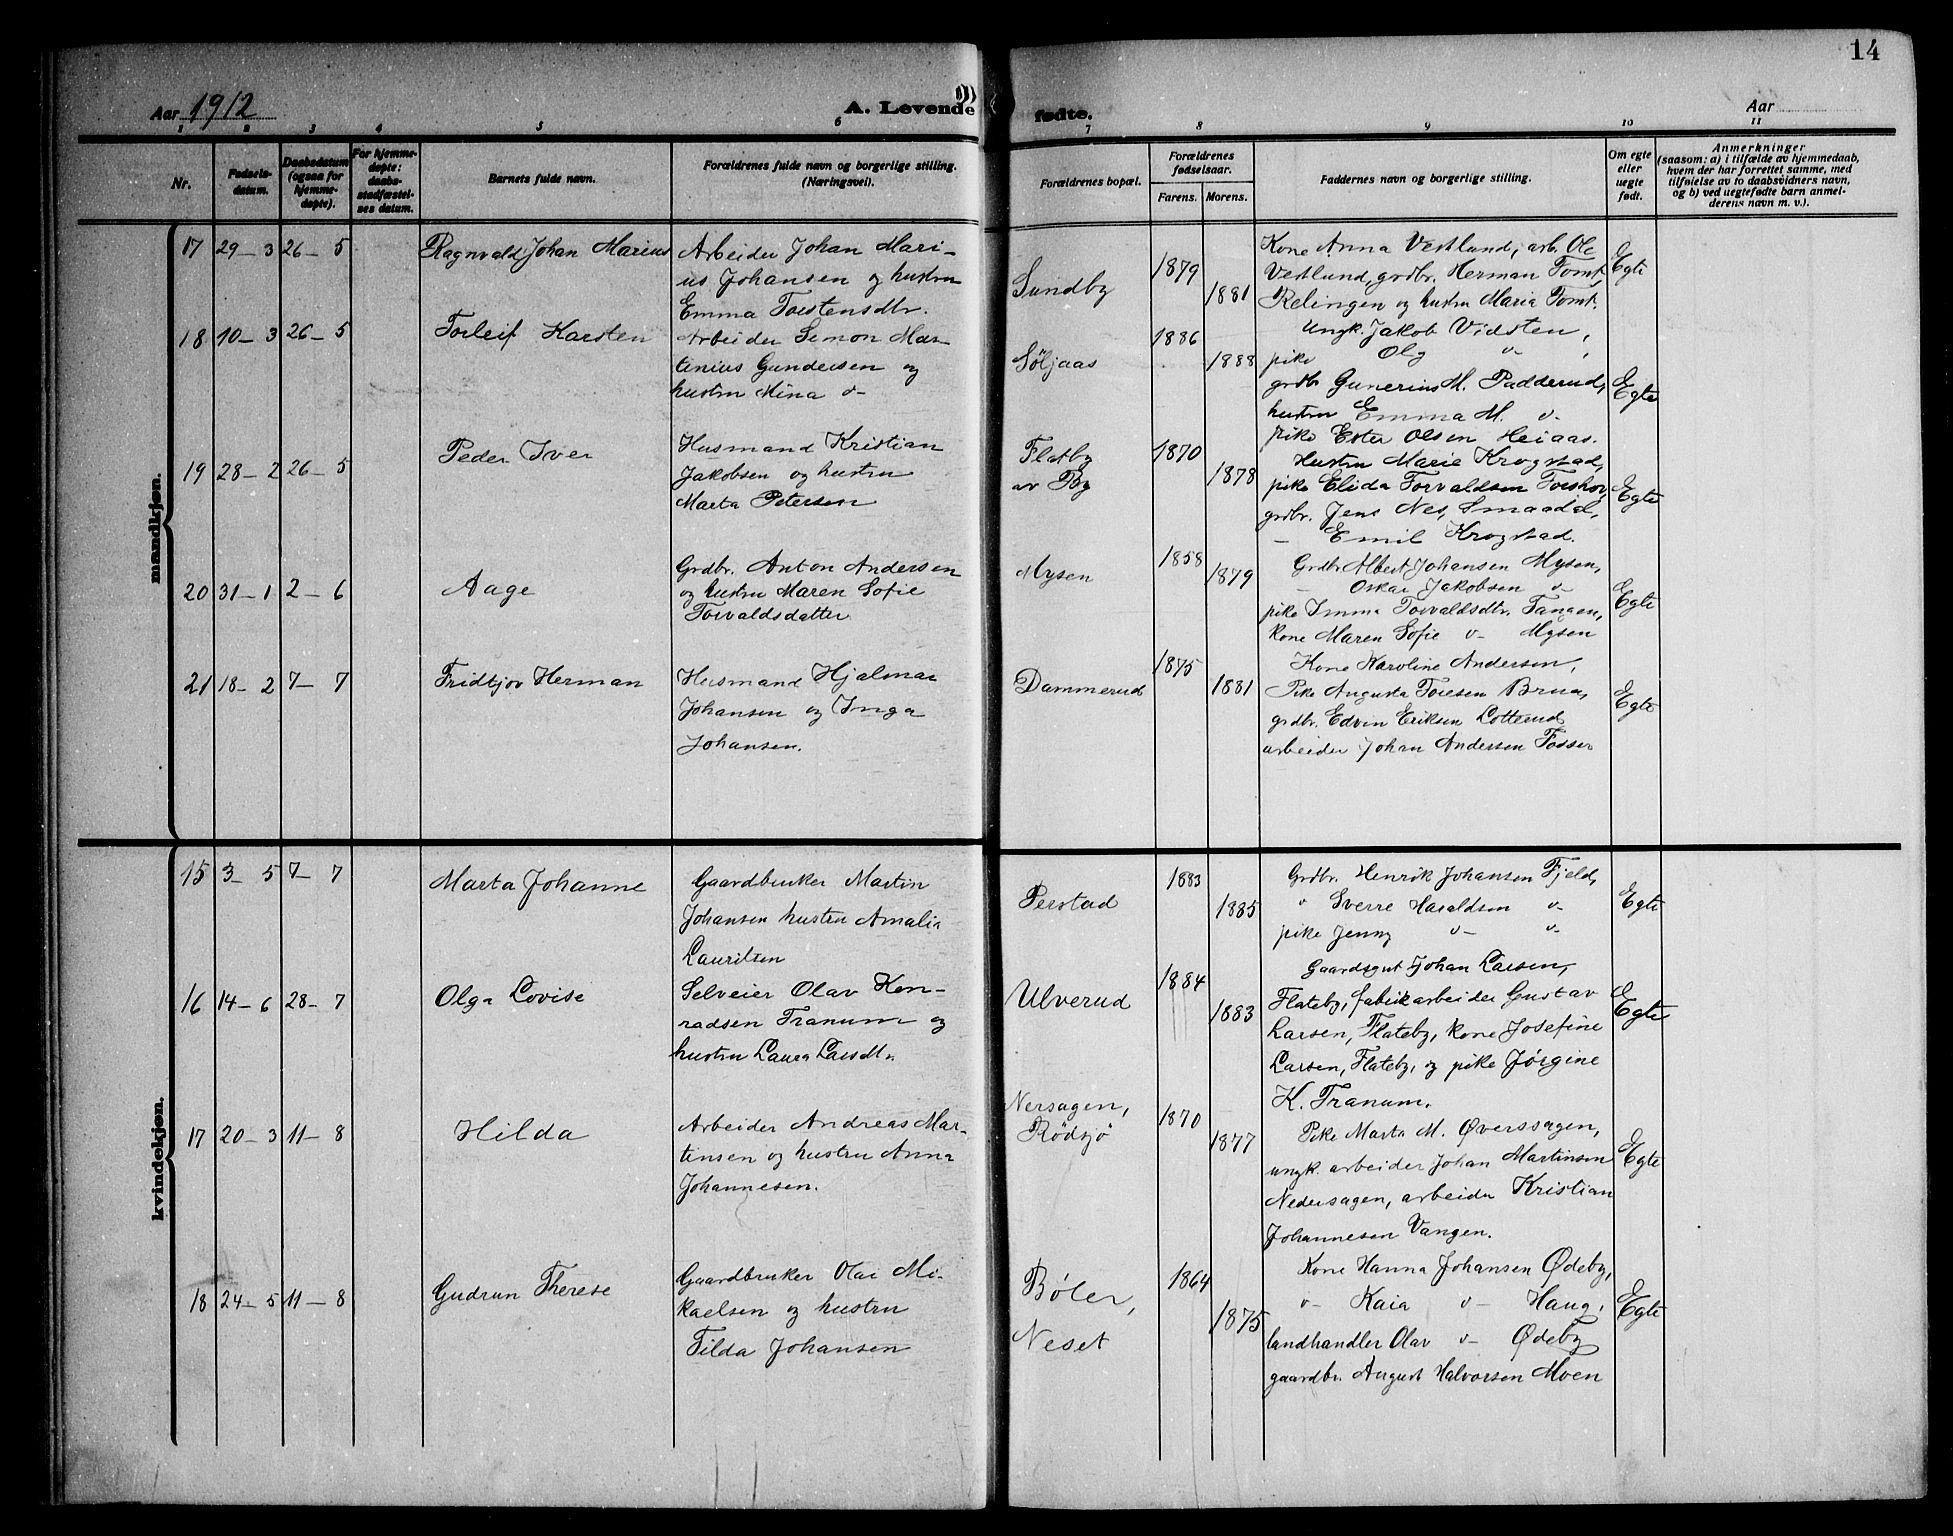 14
Aar 1912
A. Levende
fødte.
Aar
1 2 3 4 5 6 7 8 9 10 11
Nr.
Fødsels-
datum.
Daabsdatum
(ogsaa for
hjemme-
døpte).
For hjemme-
døpte:
daabs-
stadfæstel-
ses datum.
Barnets fulde navn.
Forældrenes fulde navn og borgerlige stilling.
(Næringsvei).
Forældrenes bopæl.
Forældrenes
fødselsaar.
Farens. Morens.
Faddernes navn og borgerlige stilling.
Om egte
eller
uegte
født.
Anmerkninger
(saasom: a) i tilfælde av hjemmedaab,
hvem der har forrettet samme, med
tilføielse av to daabsvidners navn,
og b) ved uegtefødte barn anmel-
derens navn m. v.).
mandkjøn.
17 29-3 26-5 Ragnvald Johan Marius
Arbeider Johan Mari-
us Johansen og hustru
Emma Torstensdtr.
Sundby 1879 1881
Kone Anna Vestlund, arb. Ole
Vestlund, grdbr. Herman Tomt,
Relingen og hustru Maria Tomt.
Egte
18 10-3 26-5 Torleif Karsten
Arbeider Simon Mar-
tinius Gundersen og
hustru Mina v-
Søljaas 1886 1888
Ungk. Jakob Vidsten,
pike Olg v- ,
grdbr Gunerius M. Padderud,
hustru Emma M. v-
pike Ester Olsen Heiaas.
Egte
19 28-2 26-5 Peder Iver
Husmand Kristian
Jakobsen og hustru
Marta Petersen
Flatby
av By
1870 1878
Hustru Marie Krogstad,
pike Elida Torvaldsen Torshov,
grdbr. Jens Nes, Smaadal,
- Emil Krogstad.
Egte
20 31-1 2-6 Aage
Grdbr. Anton Andersen
og hustru Maren Sofie
Torvaldsdatter
Mysen 1858 1879
Grdbr Albert Johansen Mysen,
- Oskar Jakobsen v-
pike Imma Torvaldsdtr. Tangen,
kone Maren Sofie v- Mysen
Egte
21 18-2 7-7 Fridtjov Herman
Husmand Hjalmar
Johansen og Inga
Johansen.
Dammerud 1875 1881
Kone Karoline Andersen,
Pike Augusta Toresen Brua,
grdbr. Edvin Eriksen Lotterud
arbeider Johan Andersen Fosser
Egte
kvindekjøn.
15 3-5 7-7 Marta Johanne
Gaardbruker Martin
Johansen hustru Amalia
Lauritsen
Perstad 1883 1885
Grdbr. Henrik Johansen Fjeld,
" Sverre Haraldsen v-
pike Jenny v- v-
Egte
16 14-6 28-7 Olga Lovise
Selveier Olav Kon-
radsen Tranum og
hustru Laura Larsdtr.
Ulverud 1884 1883
Gaardsgut Johan Larsen,
Flateby, fabrikarbeider Gustav
Larsen, Flateby, kone Josefine
Larsen, Flateby, og pike Jørgine
K. Tranum.
Egte
17 20-3 11-8 Hilda
Arbeider Andreas Mar-
tinsen og hustru Anna
Johannesen.
Nersagen,
Rødsjø
1870 1877
Pike Marta M. Øverssagen,
ungk. arbeider Johan Martinsen
Nedersagen, arbeider Kristian
Johannesen Vangen.
Egte
18 24-5 11-8 Gudrun Therese
Gaardbruker Olai Mi-
kaelsen og hustru
Tilda Johansen
Bøler,
Neset
1864 1875
Kone Hanna Johansen Ødeby,
v- Kaia v- Haug,
landhandler Olav v- Ødeby
gaardbr. August Halvorsen Moen
Egte